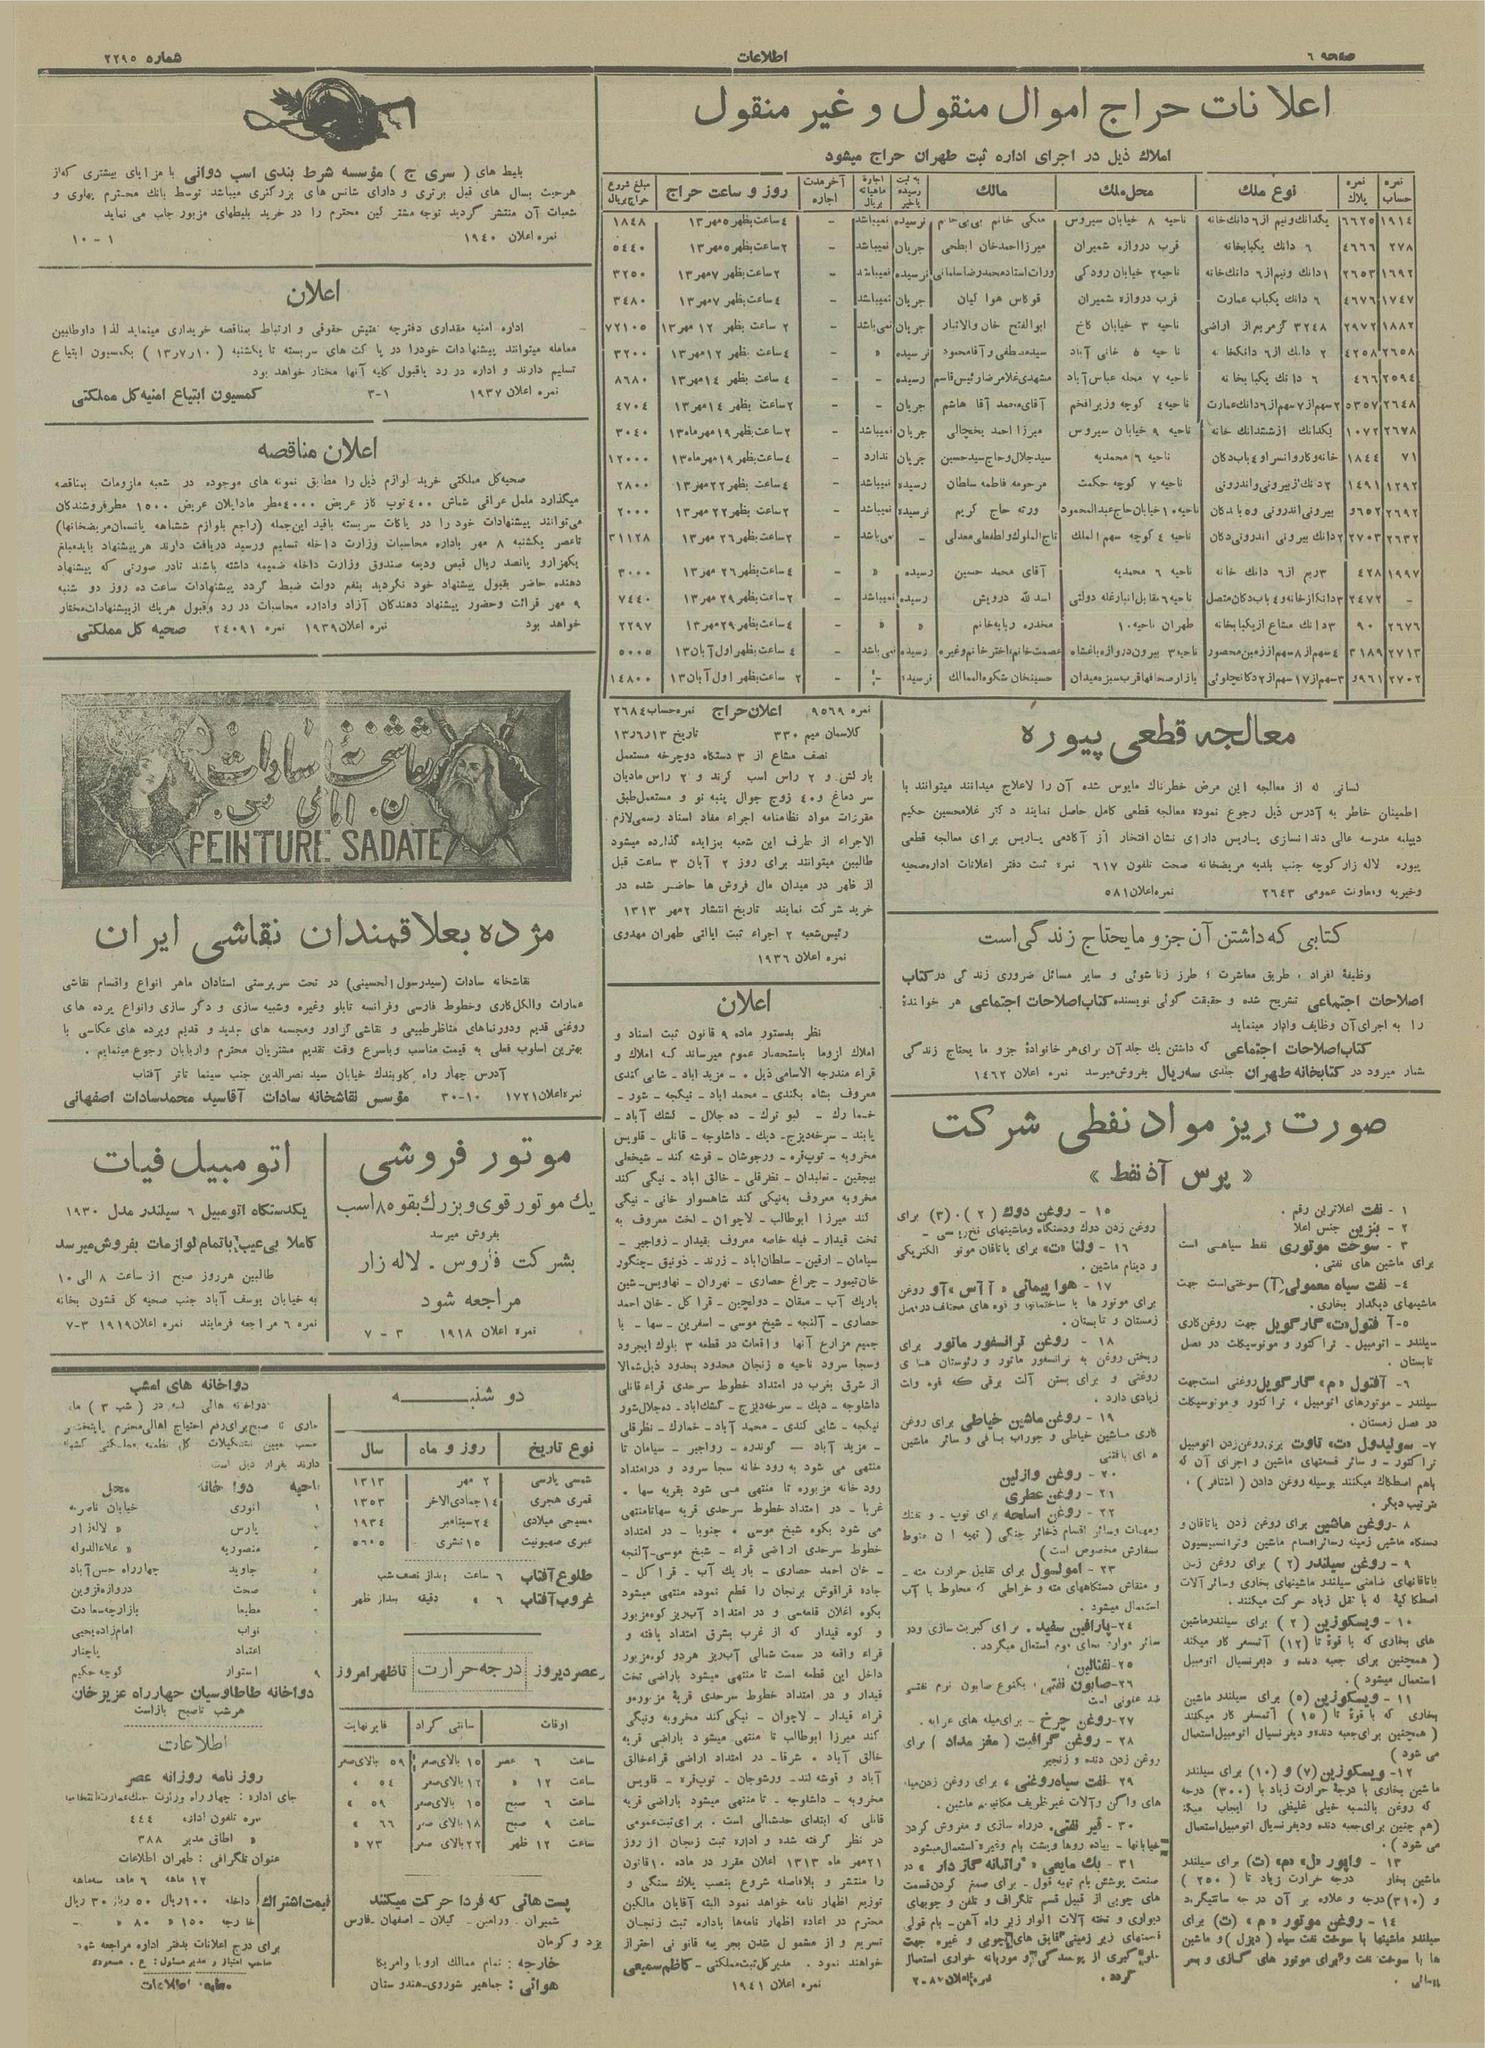 صفحه ٦
اطلاعات
شماره ٢٢٩٥
اعلانات حراج اموال منقول و غیر منقول
املاك ذیل در اجرای اداره ثبت طهران حراج میشود
نمره حساب نمره پلاك نوع ملك محل ملك مالك آخر مدت اجاره روز و ساعت حراج مبلغ شروع حراج بریال
١٩١٤ ٦٦٢٥ یكدانك ونیم از ٦ دانك خانه ناحیه ٨ خیابان سیروس نرسیده نمیباشد - ٤ ساعت بظهر ٥ مهر ١٣ ١٨٤٨
٢٧٨ ٤٦٦٦ ٦ دانك یكبابخانه قرب دروازه شمیران میرزا احمدخان ابطحی جریان نمیباشد - ٢ ساعت بظهر ٥ مهر ١٣ ٥٤٤٠
١٦٩٢ ٢٦٥٣ ١ دانك ونیم از ٦ دانك خانه ناحیه ٢ خیابان رودكی نرسیده نمیباشد - ٢ ساعت بظهر ٧ مهر ١٣ ٣٢٥٠
١٧٤٧ ٤٦٧٦ ٦ دانك یكباب عمارت قرب دروازه شمیران جریان نمیباشد - ٤ ساعت بظهر ٧ مهر ١٣ ٣٤٨٠
١٨٨٢ ٢٩٧٢ ٣٢٤٨ گز مربع از اراضی ناحیه ٣ خیابان كاخ ابوالفتح خان والاتبار جریان نمی باشد - ٢ ساعت بظهر ١٢ مهر ١٣ ٧٢١٠٥
٢٦٥٨ ٤٢٥٨ ٢ دانك از ٦ دانكخانه ناحیه ٥ خانی آباد سیدمصطفی و آقامحمود نرسیده » - ٤ ساعت بظهر ١٢ مهر ١٣ ٣٢٠٠
٢٥٩٤ ٤٦٦ ٦ دانك یكبابخانه ناحیه ٧ محله عباس آباد مشهدی غلامرضا رئیس قاسم رسیده - - ٤ ساعت بظهر ١٤ مهر ١٣ ٨٦٨٠
٢٦٤٨ ٥٣٥٧ ٢ سهم از ٧ سهم از ٦ دانك عمارت ناحیه ٤ كوچه وزیر افخم آقای محمد آقا هاشم جریان - - ٢ ساعت بظهر ١٤ مهر ١٣ ٤٧٠٤
٢٦٧٨ ١٠٧٢ یكدانك از ششدانك خانه ناحیه ٩ خیابان سیروس میرزا احمد یخچالی جریان نمیباشد - ٢ ساعت بظهر ١٩ مهر ماه ١٣ ٣٠٤٠
٧١ ١٨٤٤ خانه وكاروانسرا و ٤ باب دكان ناحیه ٦ محمدیه سید جلال وحاج سید حسین جریان ندارد - ٤ ساعت بظهر ١٩ مهر ماه ١٣ ١٢٠٠٠
١٢٩٢ ١٤٩١ ٢ دانك از بیرونی واندرونی ناحیه ٧ كوچه حكمت مرحومه فاطمه سلطان رسیده نمیباشد - ٤ ساعت بظهر ٢٢ مهر ١٣ ٢٨٠٠
٢٦٩٢ بیرونی اندرونی و ٥ باب دكان ناحیه ١٠ خیابان حاج عبدالمحمود ورثه حاج كریم نرسیده نمیباشد - ٢ ساعت بظهر ٢٢ مهر ١٣ ٢٠٠٠
٢٦٣٢ ٢٧٠٣ ٢ دانك بیرونی اندرونی دكان ناحیه ٤ كوچه سهم الملك تاج الملوك و لطفعلی معدلی - نمی باشد - ٢ ساعت بظهر ٢٦ مهر ١٣ ٣١١٢٨
١٩٩٧ ٤٢٨ ٣ ربع از ٦ دانك خانه ناحیه ٦ محمدیه آقای محمد حسین رسیده » - ٤ ساعت بظهر ٢٦ مهر ١٣ ٣٠٠٠
- ٢٤٧٢ ٣ دانك از خانه و ٤ باب دكان متصل ناحیه ٦ مقابل انبار غله دولتی اسد الله درویش رسیده نمیباشد - ٢ ساعت بظهر ٢٩ مهر ١٣ ٧٤٤٠
٢٦٧٦ ٩٠ ٣ دانك مشاع از یكبابخانه طهران ناحیه ١٠ مخدره ربابه خانم » » - ٤ ساعت بظهر ٢٩ مهر ١٣ ٢٢٩٧
٢٧١٣ ٣١٨٩ ٤ سهم از ٨ سهم از زمین محصور ناحیه ٣ بیرون دروازه باغشاه عصمت خانم، اختر خانم وغیره رسیده نمی باشد - ٤ ساعت بظهر اول آبان ١٣ ٥٠٠٥
٢٧٠٢ ٣ سهم از ١٧ سهم از ٢ دكانچلوئی بازار صحافها قرب سبزه میدان حسینخان شكوه الممالك نرسیده - - ٢ ساعت بظهر اول آبان ١٣ ١٤٨٠٠
معالجه قطعی پیوره
كسانی كه از معالجه این مرض خطرناك مایوس شده آن را لاعلاج میدانند میتوانند با
اطمینان خاطر به آدرس ذیل رجوع نموده معالجه قطعی كامل حاصل نمایند دكتر غلامحسین حكیم
دیپلمه مدرسه عالی دندانسازی پاریس دارای نشان افتخار از آكادمی پاریس برای معالجه قطعی
پیوره لاله زار كوچه جنب بلدیه مریضخانه صحت تلفون ٦١٧ نمره ثبت دفتر اعلانات اداره صحیه
وخیریه ومعاونت عمومی ٢٦٤٣ نمره اعلان ٥٨١
كتابی كه داشتن آن جزو مایحتاج زندگی است
وظیفهٔ افراد ، طریق معاشرت ، طرز زناشوئی و سایر مسائل ضروری زندگی در كتاب
اصلاحات اجتماعی تشریح شده و حقیقت گوئی نویسنده كتاب اصلاحات اجتماعی هر خوانندهٔ
را به اجرای آن وظایف وادار مینماید
كتاب اصلاحات اجتماعی كه داشتن یك جلد آن برای هر خانوادهٔ جزو ما یحتاج زندگی
شمار میرود در كتابخانه طهران جلدی سه ریال بفروش میرسد نمره اعلان ١٤٦٢
صورت ریز مواد نفطی شركت
« پرس آذ نفط »
١ - نفت اعلاترین رقم .
٢ - بنزین جنس اعلا
٣ - سوخت موتوری نفط سیاهی است
برای ماشین های نفتی .
٤ - نفت سیاه معمولی (آ) سوختی است جهت
ماشینهای دیگدار بخاری .
٥ - آفتول «ت» گارگویل جهت روغن كاری
سیلندر - اتومبیل - تراكتور و موتوسیكلت در فصل
تابستان .
٦ - آفتول «م» گارگویل روغنی است جهت
سیلندر - موتورهای اتومبیل ، تراكتور و موتوسیكلت
در فصل زمستان .
٧ - سولیدول «ت» تاوت برای روغن زدن اتومبیل
تراكتور - و سائر قسمتهای ماشین و اجزای آن كه
باهم اصطكاك میكنند بوسیله روغن دادن ( اشتافر )
ترتیب دیگر .
٨ - روغن ماشین برای روغن زدن یاتاقان و
دستگاه ماشین زمینه وسایر اقسام ماشین و ترانسمیسیون
٩ - روغن سیلندر (٢) برای روغن زدن
یاتاقانهای ضامنی سیلندر ماشینهای بخاری وسایر آلات
اصطكاكیهٔ كه با ثقل زیاد حركت میكنند .
١٠ - ویسكوزین (٢) برای سیلندر ماشین
های بخاری كه با قوهٔ تا (١٢) آتمسفر كار میكند
( همچنین برای جعبه دنده و دیفرنسیال اتومبیل
استعمال میشود ) .
١١ - ویسكوزین (٥) برای سیلندر ماشین
بخاری كه با قوهٔ تا (١٥) آتمسفر كار میكند
( همچنین برای جعبه دنده و دیفرنسیال اتومبیل استعمال
می شود )
١٢ - ویسكوزین (٧) و (١٠) برای سیلندر
ماشین بخاری با درجهٔ حرارت زیاد با (٣٠٠) درجه
كه روغن بالنسبه خیلی غلیظی را ایجاب میكند
(هم چنین برای جعبه دنده ودیفرنسیال اتومبیل استعمال
می شود ) .
١٣ - واپور «ل» «م» (ت) برای سیلندر
ماشین بخار درجه حرارت زیاد تا (٢٥٠)
و (٣١٠) درجه و علاوه بر آن درجه سانتیگراد
١٤ - روغن موتور «م» (ت) برای
سیلندر ماشینها با سوخت نفت سیاه (دیزل) و ماشین
ها با سوخت نفت و برای موتور های گازی و بحر
پیمائی .
١٥ - روغن دوك (٢) ، (٣) برای
روغن زدن دوك ودستگاه وماشینهای نخ ریسی .
١٦ - ولتا «ت» برای یاتاقان موتور الكتریكی
و دینام ماشین .
١٧ - هوا پیمائی « آآس » آو روغن
برای موتور ها با ساختمانها و قوه های مختلف در فصل
زمستان و تابستان .
١٨ - روغن ترانسفور ماتور برای
ریختن روغن به ترانسفور ماتور و رئوستان های
روغنی و برای بستن آلت برقی كه قوه ولت
زیادی دارد .
١٩ - روغن ماشین خیاطی برای روغن
كاری ماشین خیاطی و جوراب بافی و سائر ماشین
های بافتنی
٢٠ - روغن وازلین
٢١ - روغن عطری
٢٢ - روغن اسلحه برای توپ - و تفنك
ومهمات وسائر اقسام ذخائر جنگی ( تهیه آن منوط
سفارش مخصوص است )
٢٣ - امولسول برای تقلیل حرارت مته -
و منقاش دستگاههای مته و خراطی كه مخلوط با آب
استعمال میشود .
٢٤ - پارافین سفید . برای كبریت سازی ودر
سائر موارد بجای موم استعمال میگردد .
٢٥ - نفتالین .
٢٦ - صابون نفتی ، یكنوع صابون نرم نفتی
ضد عفونی است
٢٧ - روغن چرخ - برای میله های عرابه .
٢٨ - روغن گرافیت ( مغز مداد ) برای
روغن زدن دنده و زنجیر
٢٩ - نفت سیاه روغنی ، برای روغن زدن میله
های واگن و آلات غیر ظریف مكانیه ماشین .
٣٠ - قیر نفتی . در راه سازی و مفروش كردن
خیابانها - پیاده روها و پشت بام وغیره استعمال میشود
٣١ - بك مایعی « رافنانه گاز دار » در
صنعت پوشش بام تهیه قول - برای صمغ كردن قسمت
های چوبی از قبیل قسم تلگراف و تلفن و چوبهای
دیواری و تخته آلات الوار زیر راه آهن - بام قولی
قسمتهای زیر زمینی قایق های چوبی و غیره جهت
جلو گیری از پوسیدگی و موریانه خواری استعمال
گردد . نمره اعلان ٢٠٨٧
نمره ٩٥٦٩ اعلان حراج نمره حساب ٢٦٨٤
كلاسمان میم ٣٣٠ تاریخ ١٣ر٦ر١٣
نصف مشاع از ٣ دستگاه دوچرخه مستعمل
بار كش و ٢ راس اسب كرند و ٢ راس مادیان
سر دماغ و ٤٠ زوج جوال پنبه نو و مستعمل طبق
مقررات مواد نظامنامه اجراء مفاد اسناد رسمی لازم
الاجراء از طرف این شعبه بمزایده گذارده میشود
طالبین میتوانند برای روز ٢ آبان ٣ ساعت قبل
از ظهر در میدان مال فروش ها حاضر شده در
خرید شركت نمایند تاریخ انتشار ٢ مهر ١٣١٣
رئیس شعبه ٢ اجراء ثبت ایالتی طهران مهدوی
نمره اعلان ١٩٣٦
اعلان
نظر بدستور ماده ٩ قانون ثبت اسناد و
املاك لزوما باستحضار عموم میرساند كه املاك و
قراء مندرجه الاسامی ذیل . - مزید آباد - شابی كندی
معروف بشاه بكندی - محمد آباد - نیكجه - شور -
خمارك - لبو ترك - ده جلال - كشك آباد -
یابند - سرخه دیزج - دیك - داشلوجه - قانلی - قلویس
مخروبه - توپ قره - ورجوشان - قوشه كند - شیخعلی
بیجقین - نعلبندان - نظرقلی - خالق آباد - نیكی كند
مخروبه معروف به نیكی كند شاهسوار خانی - نیكی
كند میرزا ابوطالب - لاچوان - لخت معروف به
تخت قیدار - قیله خاصه معروف بقیدار - زواجیر -
سیامان - ارقین - سلطان آباد - زرند - ذونیق - چنگور
خان تیمور - چراغ حصاری - نهروان - نهاویس - شین
باریك آب - مبقان - دولچین - قرا كل - خان احمد
حصاری - آلنجه - شیخ موسی - اسفرین - سها - با
جمیع مزارع آنها واقعات در قطعه ٣ بلوك ایجرود
وسجا سرود ناحیه ٥ زنجان محدود بحدود ذیل شمالا
از شرق بغرب در امتداد خطوط سرحدی قراء قانلی
داشلوجه - دیك - سرخه دیزج - كشك آباد - ده جلال شور
نیكجه - شابی كندی - محمد آباد - خمارك - نظرقلی
- مزید آباد — گوندره - رواجیر - سیامان تا
منتهی می شود به رود خانه سجا سرود و در امتداد
رود خانه مزبوره تا منتهی می شود بقریه سها .
غربا - در امتداد خطوط سرحدی قریه سها تا منتهی
می شود بكوه شیخ موسی ، جنوبا - در امتداد
خطوط سرحدی اراضی قراء - شیخ موسی - آلنجه
- خان احمد حصاری - باریك آب - قراكل -
جاده قراقوش برنجان را قطع نموده منتهی میشود
بكوه اعلان قلمه سی و در امتداد آب ریز كوه مزبور
و كوه قیدار كه از غرب بشرق امتداد یافته و
قراء واقعه در سمت شمالی آب ریز هر دو كوه مزبور
داخل این قطعه است تا منتهی میشود باراضی تخت
قیدار و در امتداد خطوط سرحدی قریهٔ مزبوره و
قراء قیدار - لاچوان - نیكی كند مخروبه ونیكی
كند میرزا ابوطالب تا منتهی میشود باراضی قریه
خالق آباد . شرقا - در امتداد اراضی قراء خالق
آباد و قوشه كند - ورشوجان - توپ قره - قلویس
مخروبه - داشلوجه - تا منتهی میشود باراضی قریه
قانلی كه ابتدای حد شمالی است . برای ثبت عمومی
در نظر گرفته شده و اداره ثبت زنجان از روز
٢١ مهر ماه ١٣١٣ اعلان مقرر در ماده ١٠ قانون
را منتشر و بلافاصله شروع بنصب پلاك سنگی و
توزیع اظهار نامه خواهد نمود البته آقایان مالكین
محترم در اعاده اظهار نامه‌ها باداره ثبت زنجان
تسریع و از مشمول شدن بجریمه قانونی احتراز
خواهند نمود . مدیر كل ثبت مملكتی - كاظم سمیعی
نمره اعلان ١٩٤١
بلیط های ( سری ج ) مؤسسه شرط بندی اسب دوانی با مزایای بیشتری كه از
هر حیث بسال های قبل برتری و دارای شانس های بزرگتری میباشد توسط بانك محترم پهلوی و
شعبات آن منتشر گردید توجه مشترلین محترم را در خرید بلیطهای مزبور جلب می نماید
نمره اعلان ١٩٤٠ ١ - ١٠
اعلان
اداره امنیه مقداری دفترچه تفتیش حقوقی و ارتباط بمناقصه خریداری مینماید لذا داوطلبین
معامله میتوانند پیشنهادات خود را در پاكت های سربسته تا یكشنبه (١٣ر٧ر١٠) بكمسیون ابتیاع
تسلیم دارند و اداره در رد یا قبول كلیه آنها مختار خواهد بود
نمره اعلان ١٩٣٧ ١-٣ كمسیون ابتیاع امنیه كل مملكتی
اعلان مناقصه
صحیه كل مملكتی خرید لوازم ذیل را مطابق نمونه های موجوده در شعبه ملزومات بمناقصه
میگذارد ململ عراقی شماش ٤٠٠ توپ گاز عریض ٤٠٠٠ متر مادایلان عریض ١٥٠٠ متر فروشندگان
می توانند پیشنهادات خود را در پاكات سربسته باقید این جمله (راجع بلوازم ششماهه پانسمان مریضخانها)
تا عصر یكشنبه ٨ مهر باداره محاسبات وزارت داخله تسلیم ورسید دریافت دارند هر پیشنهاد باید مبلغ
یكهزار و پانصد ریال قبض ودیعه صندوق وزارت داخله ضمیمه داشته باشند تا در صورتی كه پیشنهاد
دهنده حاضر بقبول پیشنهاد خود نگردید بنفع دولت ضبط گردد پیشنهادات ساعت ده روز دو شنبه
٩ مهر قرائت وحضور پیشنهاد دهندگان آزاد واداره محاسبات در رد یا قبول هر یك از پیشنهادات مختار
خواهد بود نمره اعلان ١٩٣٩ نمره ٢٤٠٩١ صحیه كل مملكتی
نقاشخانه سادات
PEINTURE SADATE
مژده بعلاقمندان نقاشی ایران
نقاشخانه سادات (سید رسول الحسینی) در تحت سرپرستی استادان ماهر انواع واقسام نقاشی
عمارات والكل كاری وخطوط فارسی وفرانسه تابلو وغیره وشبیه سازی و دكر سازی وانواع پرده های
روغنی قدیم ودورنماهای مناظر طبیعی و نقاشی گراور ومجسمه های جدید و قدیم وپرده های عكاسی با
بهترین اسلوب فعلی به قیمت مناسب وباسرع وقت تقدیم مشتریان محترم واربابان رجوع مینمایم .
آدرس چهار راه كلوبندك خیابان سید نصرالدین جنب سینما تاتر آفتاب
نمره اعلان ١٧٢١ ١٠-٣٠ مؤسس نقاشخانه سادات آقا سید محمد سادات اصفهانی
موتور فروشی
یك موتور قوی و بزرك بقوه ٨٥ اسب
بفروش میرسد
بشركت فاروس . لاله زار
مراجعه شود
نمره اعلان ١٩١٨ ٣ - ٧
اتومبیل فیات
یكدستگاه اتومبیل ٦ سیلندر مدل ١٩٣٠
كاملا بی عیب با تمام لوازمات بفروش میرسد
طالبین هر روز صبح از ساعت ٨ الی ١٠
به خیابان یوسف آباد جنب صحیه كل قشون بخانه
نمره ٦ مراجعه فرمایند نمره اعلان ١٩١٩ ٣-٧
دو شنبه
نوع تاریخ روز و ماه سال
شمسی پارسی ٢ مهر ١٣١٣
قمری هجری ١٤ جمادی الاخر ١٣٥٣
مسیحی میلادی ٢٤ سپتامبر ١٩٣٤
عبری صهیونیت ١٥ تشری ٥٦٠٥
طلوع آفتاب ٦ ساعت بعد از نصف شب
غروب آفتاب ٦ دقیقه بعد از ظهر
عصر دیروز درجه حرارت تا ظهر امروز
اوقات سانتی گراد فارنهایت
ساعت ٦ عصر ١٥ بالای صفر ٥٩ بالای صفر
ساعت ١٢ » ١٢ بالای صفر ٥٤ »
ساعت ٦ صبح ١٥ بالای صفر ٥٩ »
ساعت ٩ صبح ١٨ بالای صفر ٦٦ »
ساعت ١٢ ظهر ٢٢ بالای صفر ٧٣ »
پست هائی كه فردا حركت میكنند
شمیران - ورامین - گیلان - اصفهان - فارس
یزد و كرمان
خارجه : تمام ممالك اروپا وامریكا
هوائی : جماهیر شوروی - هندوستان
دواخانه های امشب
دواخانه هائی كه در ( شب ٣ ) ماه
جاری تا صبح برای رفع احتیاج اهالی محترم پایتخت بر
حسب تعیین تشكیلات كل نظمیه مملكتی كشیك
دارند بقرار ذیل است :
ناحیه دوا خانه محل
١ انوری خیابان ناصریه
پارس » لاله زار
منصوریه » علاءالدوله
جاوید چهارراه حسن آباد
صحت دروازه قزوین
بازارچه سعادت
نواب امامزاده یحیی
اعتماد پاچنار
٩ استوار كوچه حكیم
دواخانه طاطاوسیان چهار راه عزیز خان
هر شب تا صبح باز است
اطلاعات
روز نامه روزانه عصر
جای اداره : چهار راه وزارت جنك عمارت انتخابیه
نمره تلفون اداره ٤٤٤
» اطاق مدیر ٣٨٨
عنوان تلگرافی : طهران اطلاعات
١٢ ماهه ٦ ماهه سه ماهه
قیمت اشتراك داخله ١٠٠ ریال ٥٠ ریال ٣٠ ریال
خارجه ١٥٠ » ٨٠ » -
برای درج اعلانات بدفتر اداره مراجعه شود
صاحب امتیاز و مدیر مسئول : ع . مسعودی
مطبعه اطلاعات